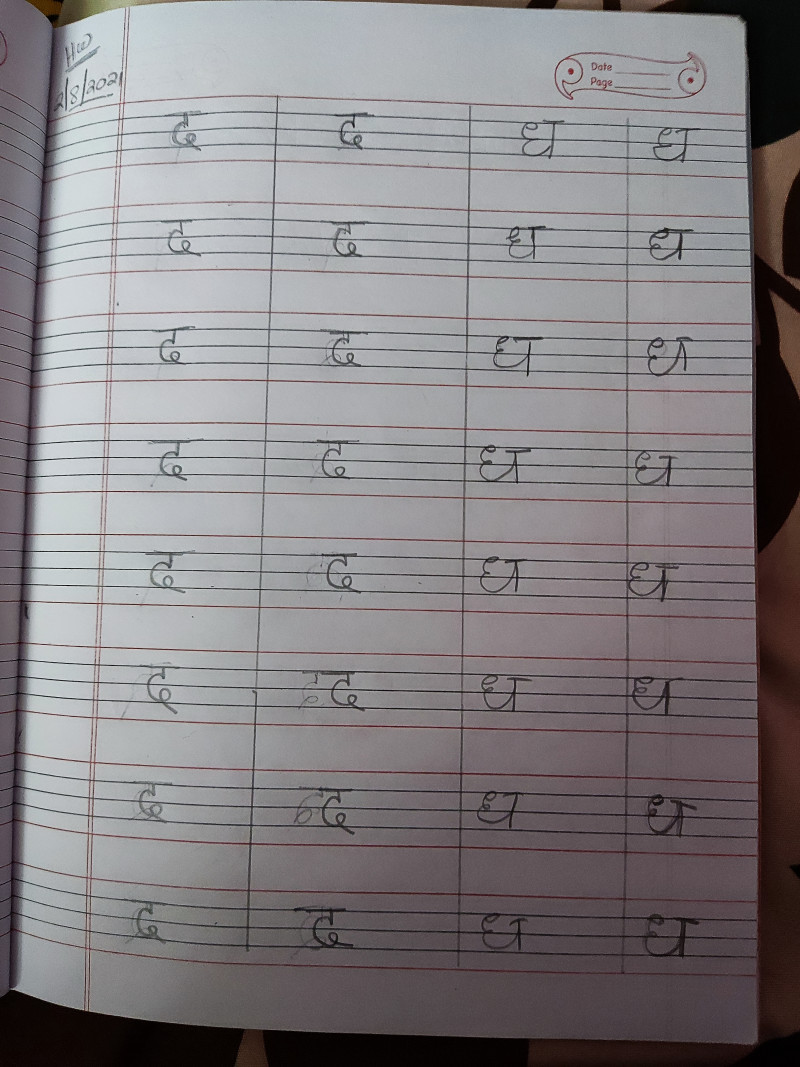 HW
2/8/2021
Date
Page
द द ध ध
द द ध ध
द द ध ध
द द ध ध
द द ध ध
द द ध ध
द द ध ध
द द ध ध